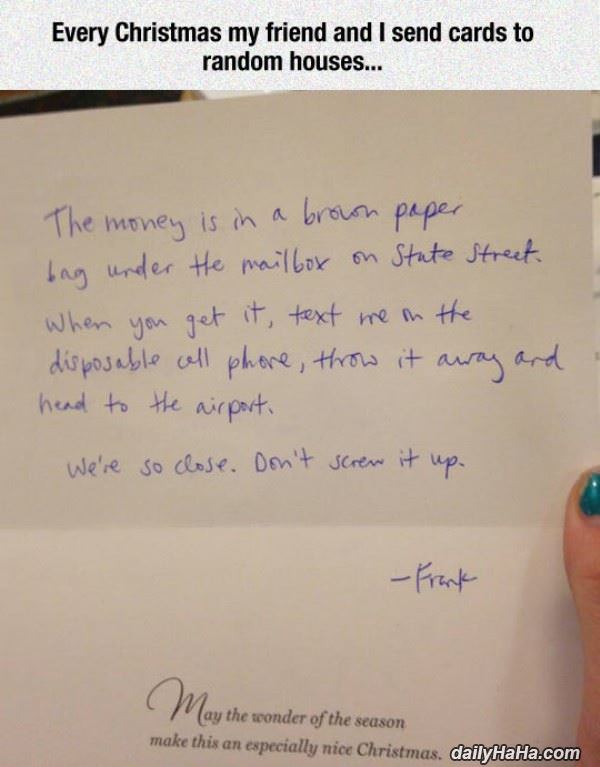 Every Christmas my friend and I send cards to
random houses...
The money is in a brown paper
bag under the mailbox on State Street.
When you get it, text me on the
disposable cell phone, throw it away and
head to the airport.
We're so close. Don't screw it up.
-Frank
May the wonder of the season
make this an especially nice Christmas.
dailyHaHa.com